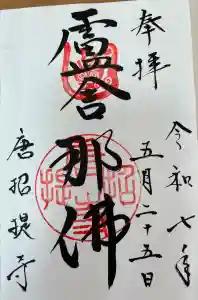 奉拝
令和七年
五月二十五日
盧舎那佛
唐招提寺